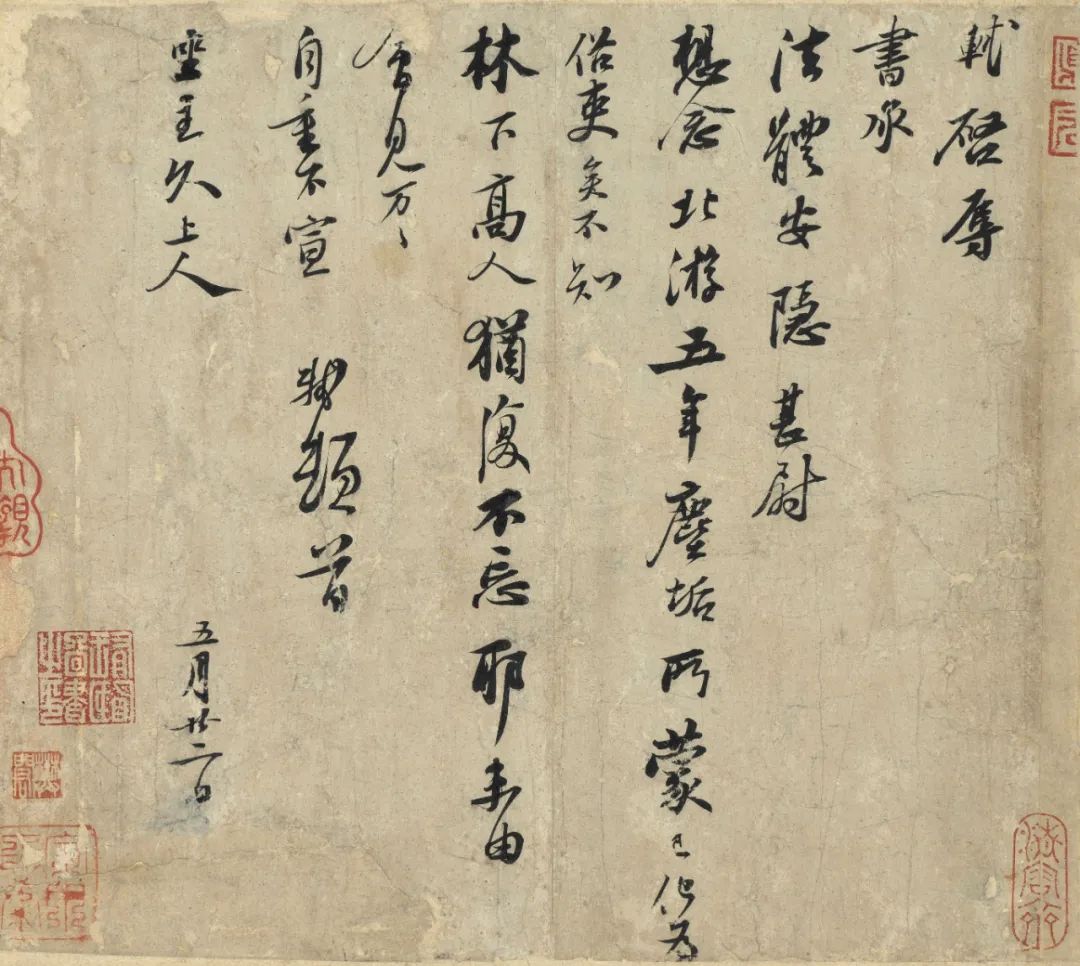 軾啓辱
書承
法體安隱甚尉
想念北游五年塵垢所蒙已化為
俗吏矣不知
林下高人猶復不忘耶未由
會見万万
自重不宣 軾頓首
坐主久上人 五月廿二日